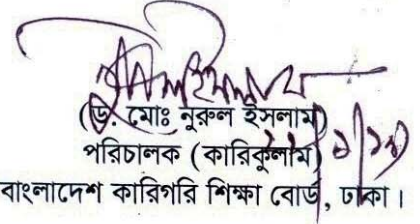 (ড. মোঃ নুরুল ইসলাম)
পরিচালক (কারিকুলাম)
বাংলাদেশ কারিগরি শিক্ষা বোর্ড, ঢাকা।